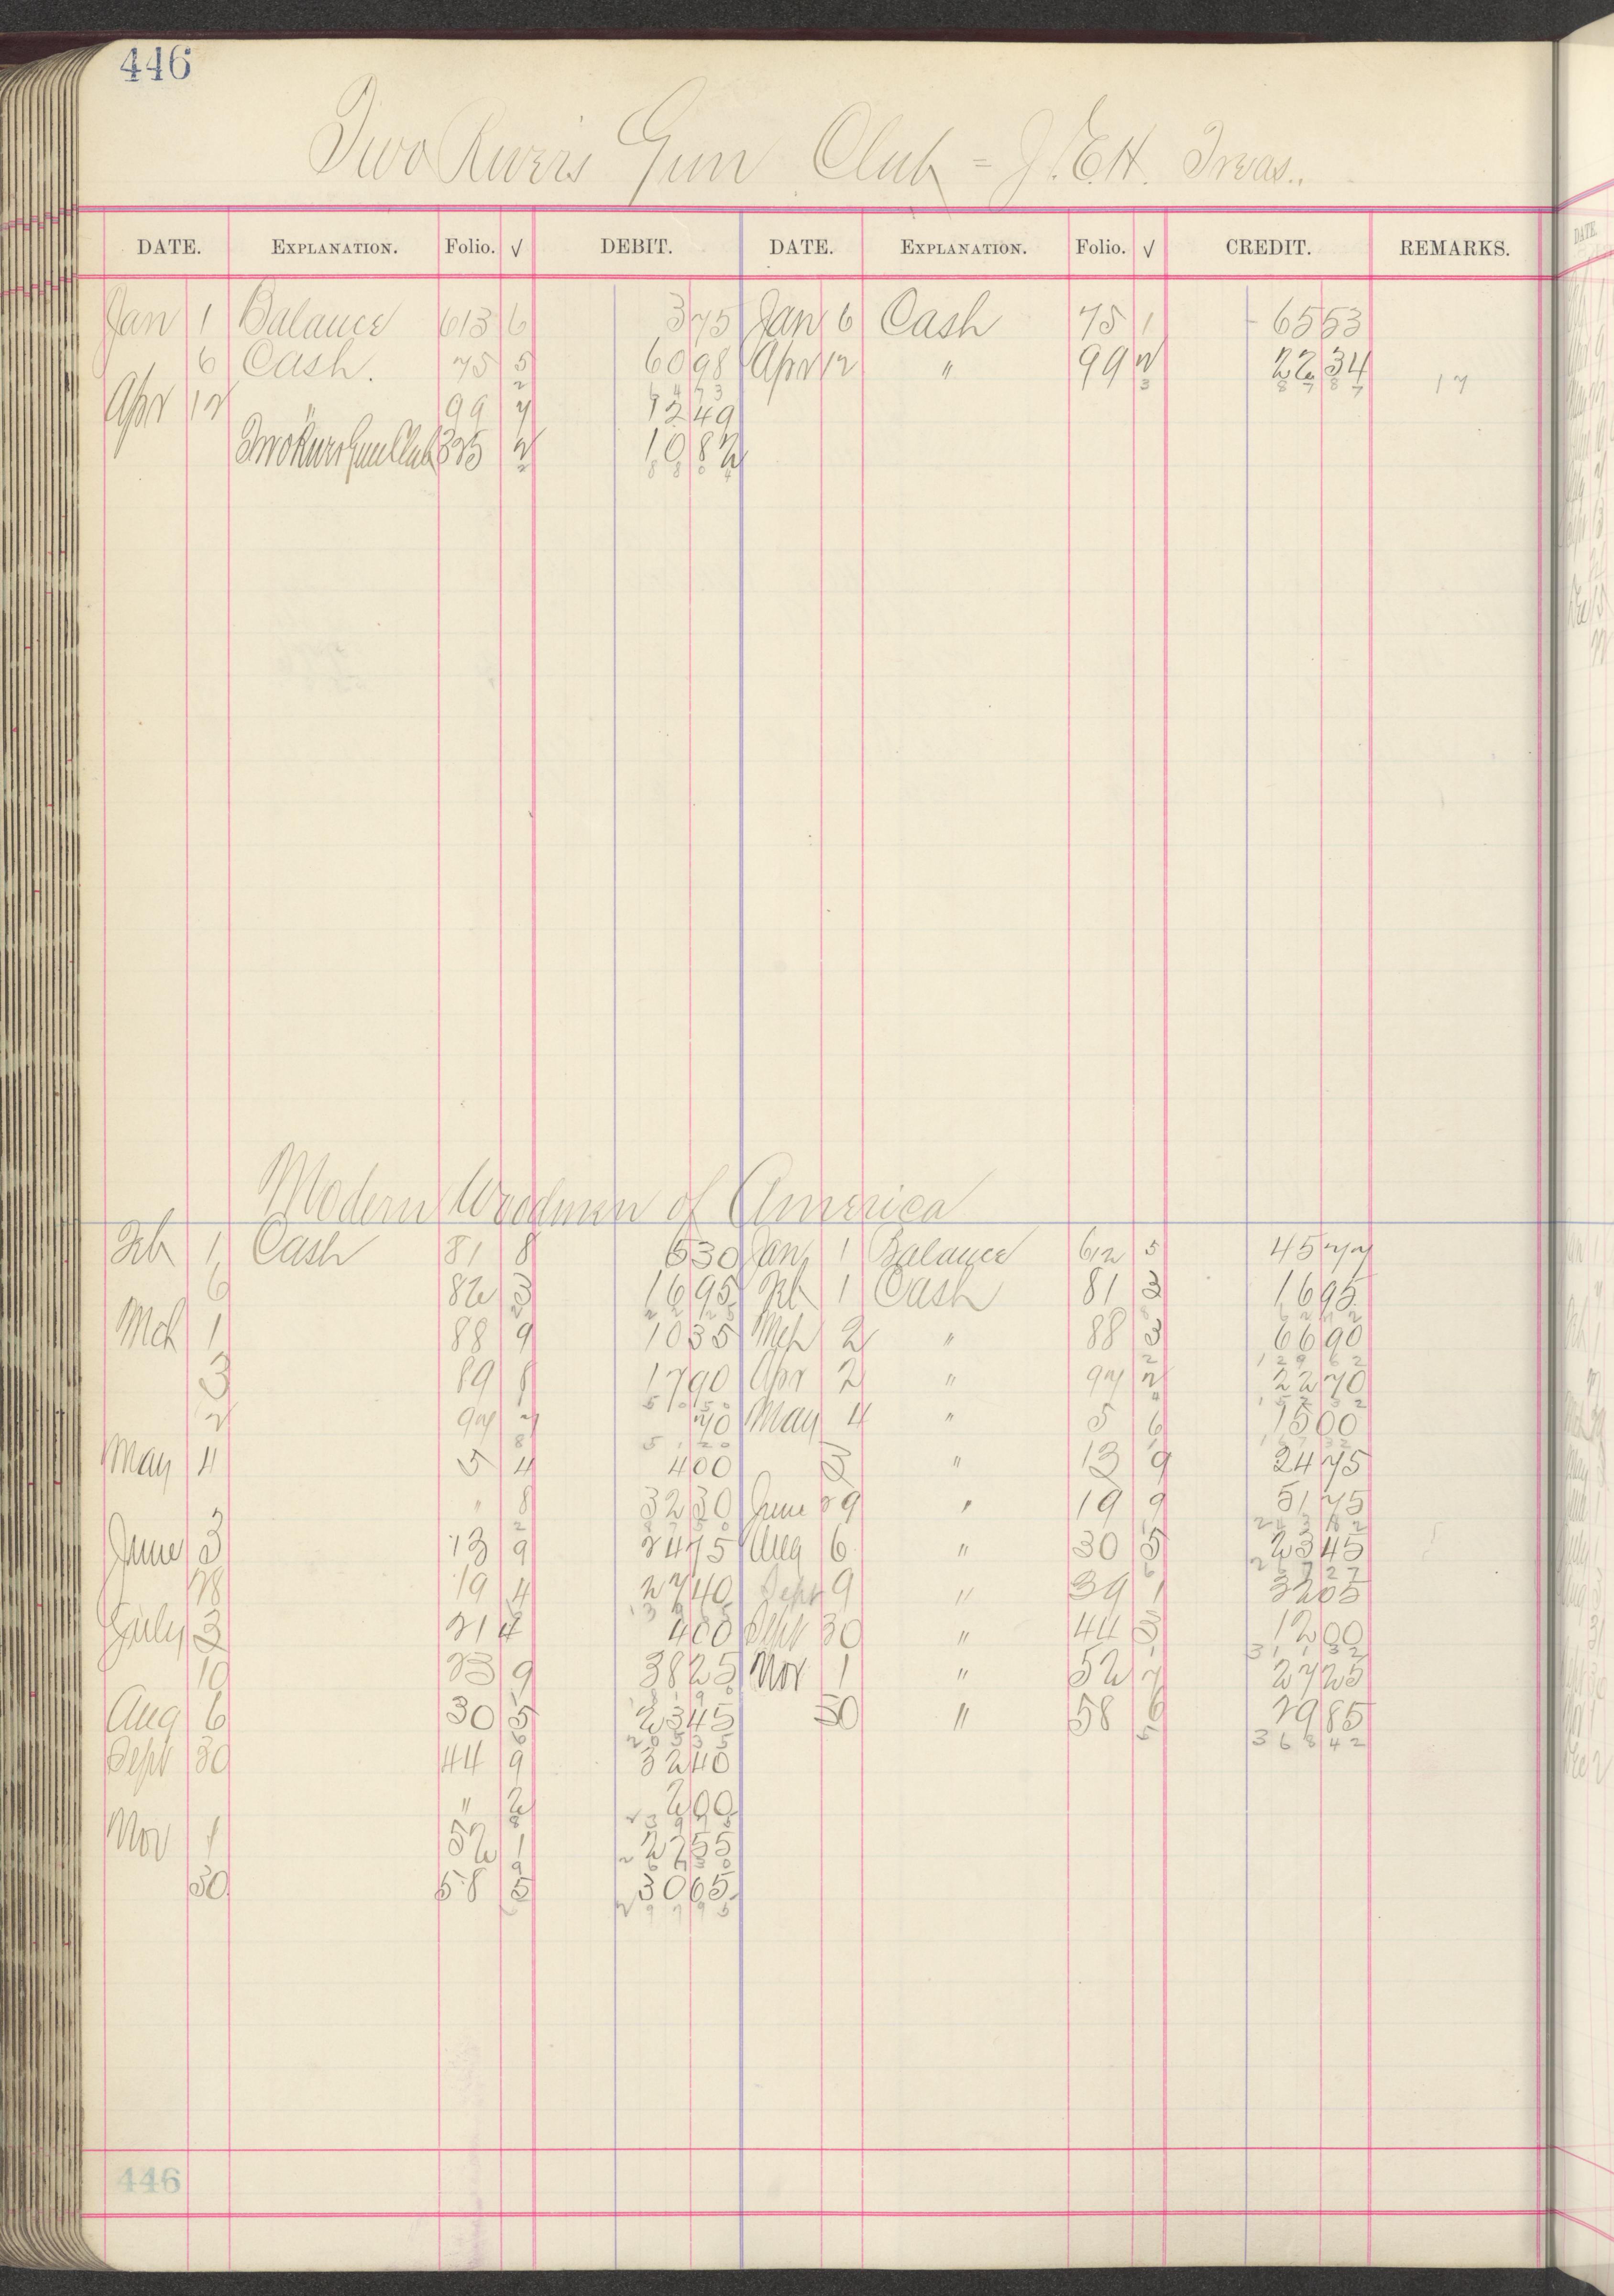 446
Two Rivers Gun Club = J.E.H. Treas.
DATE. EXPLANATION. Folio. √ DEBIT. DATE. EXPLANATION. Folio. √ CREDIT. REMARKS.
Jan 1 Balance 613 6 3 75 Jan 6 Cash 75 1 65 53
6 Cash. 75 5 60 98 Apr 12 " 99 2 22 34
64 73 87 87 17
Apr 12 " 99 7 12 49
Two Rivers Gun Club 325 2 10 82
88 04
Modern Woodmen of America
Feb 1 Cash 81 8 6 30 Jan 1 Balance 612 5 45 77
6 82 3 16 95 Feb 1 Cash 81 3 16 95
Mch 1 88 9 10 35 Mch 2 " 88 3 66 90
129 62
3 89 8 17 90 Apr 2 " 97 2 22 70
51 50 152 32
2 97 7 70 May 4 " 5 6 15 00
51 20 167 32
May 4 5 4 4 00 " 13 9 24 75
" 8 32 30 June 29 " 19 9 51 75
243 82
June 3 13 9 24 75 Aug 6 " 30 5 23 45
267 27
28 19 4 27 40 Sept 9 " 39 1 32 05
July 3 21 4 4 00 Sept 30 " 44 3 12 00
311 32
10 23 9 38 25 Nov 1 " 52 7 27 25
Aug 6 30 5 23 45 30 " 58 6 29 85
205 35 368 42
Sept 30 44 9 32 40
" 2 2 00
239 75
Nov 1 52 1 27 55
267 30
30 58 5 30 65
297 95
446